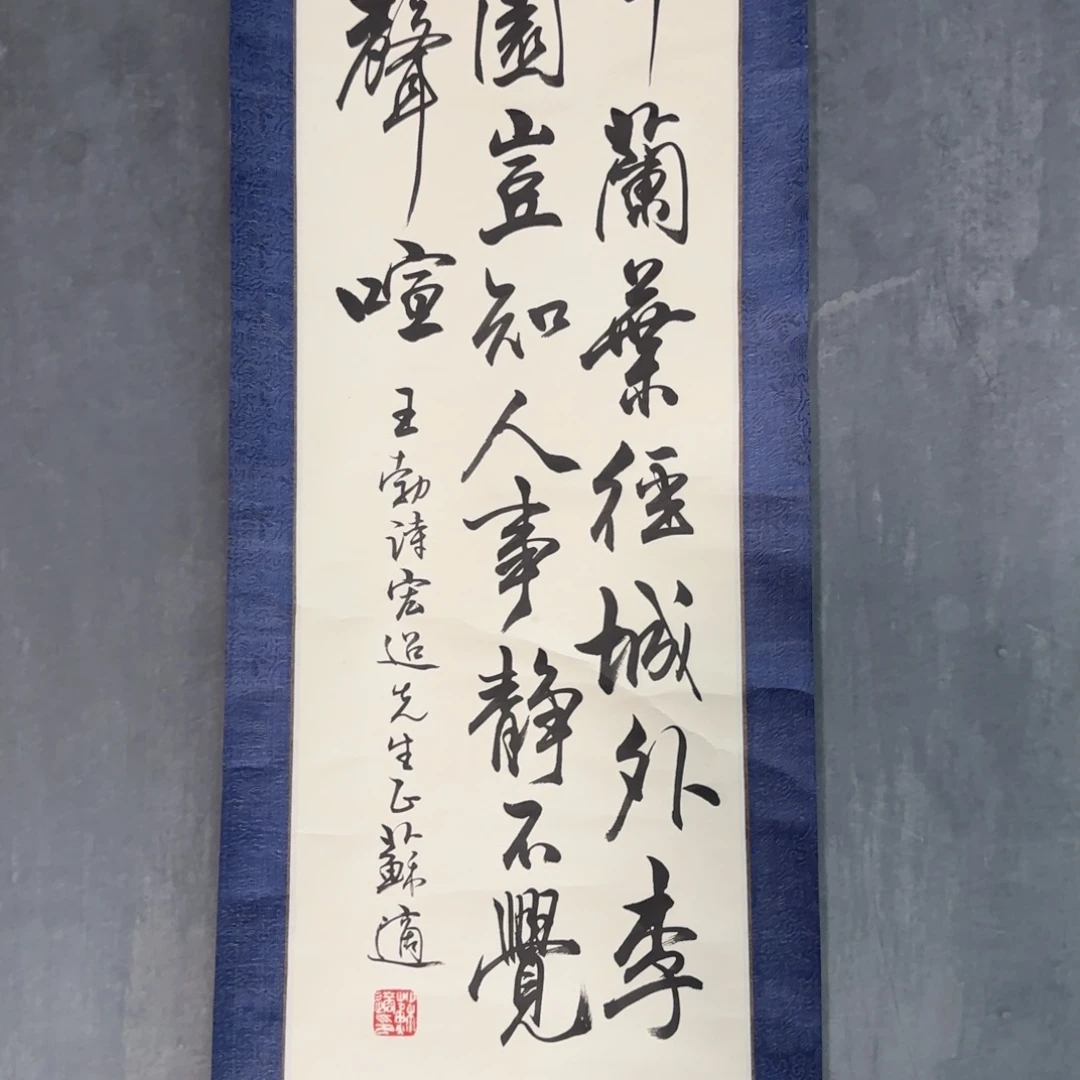 蘭葉徑城外李
園豈知人事靜不覺
聲喧
王勃詩宏先生正蘇適